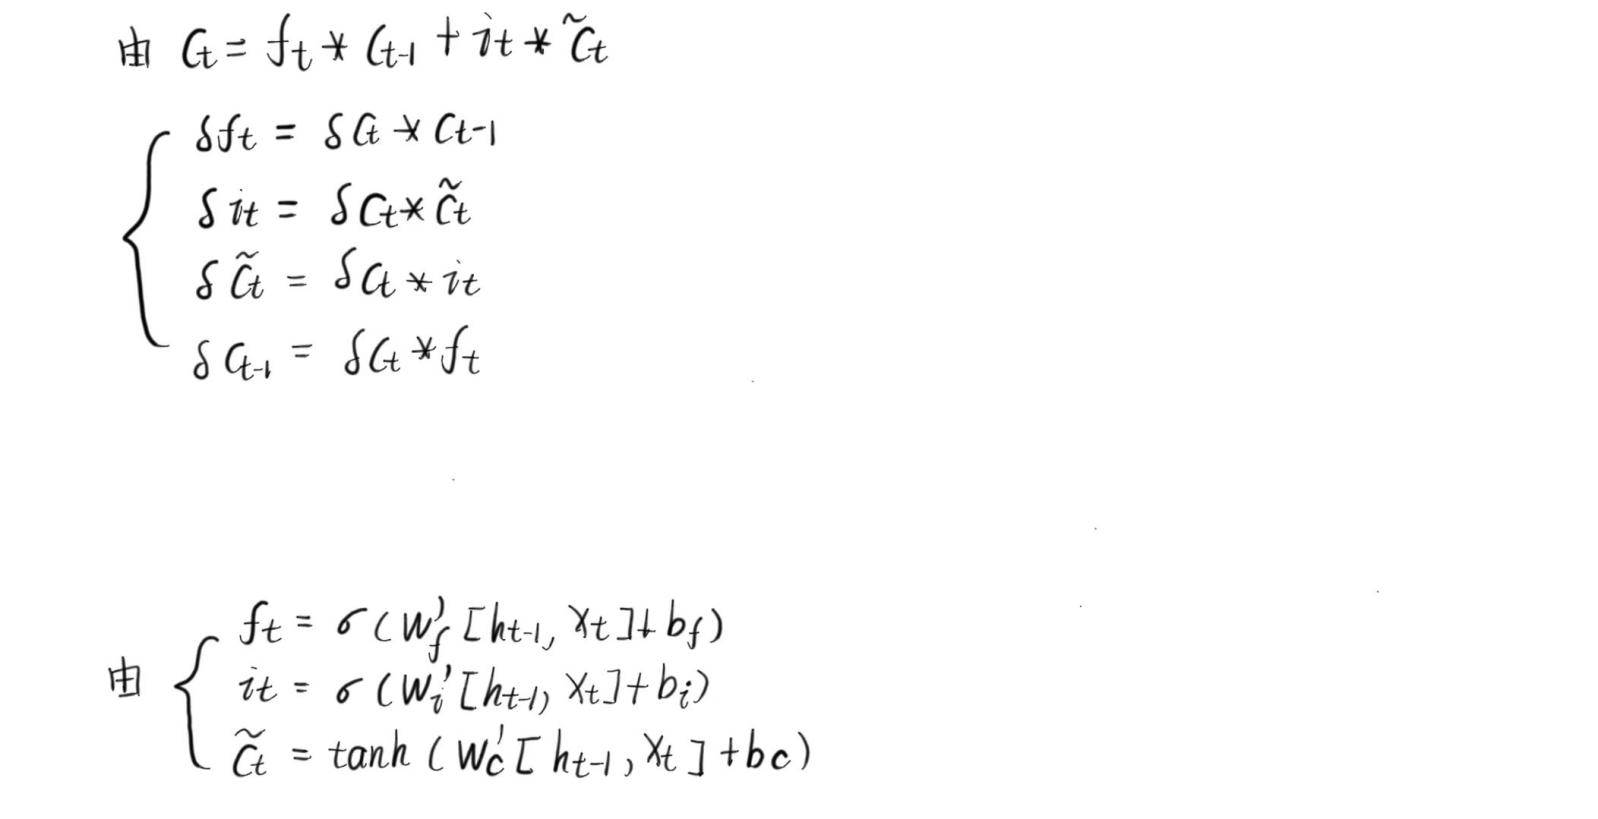 由 Ct = ft * Ct-1 + it * C̃t
δft = δCt * Ct-1
δit = δCt * C̃t
δC̃t = δCt * it
δCt-1 = δCt * ft
ft = σ(Wf' [ht-1, Xt] + bf)
由 it = σ(Wi' [ht-1, Xt] + bi)
C̃t = tanh(Wc' [ht-1, Xt] + bc)